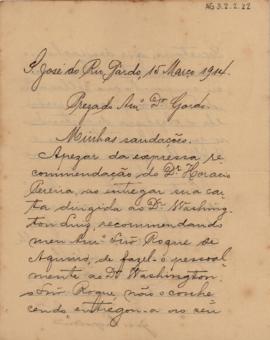 AG 3.2.2.22
S. José do Rio Pardo, 15 Março 1914.
Prezado Am.º Dr. Gordo.
Minhas saudações.
Apezar da expressa re
commendação do Dr. Horacio
Pereira, ao entregar sua car
ta dirigida ao Dr. Washing
ton Luis, recommendando
meu Am.º Snr. Roque de
Aquino, de fazel-o pessoal
mente ao Dr. Washington,
o Snr. Roque, não o conhe
cendo entregou-a ao seu